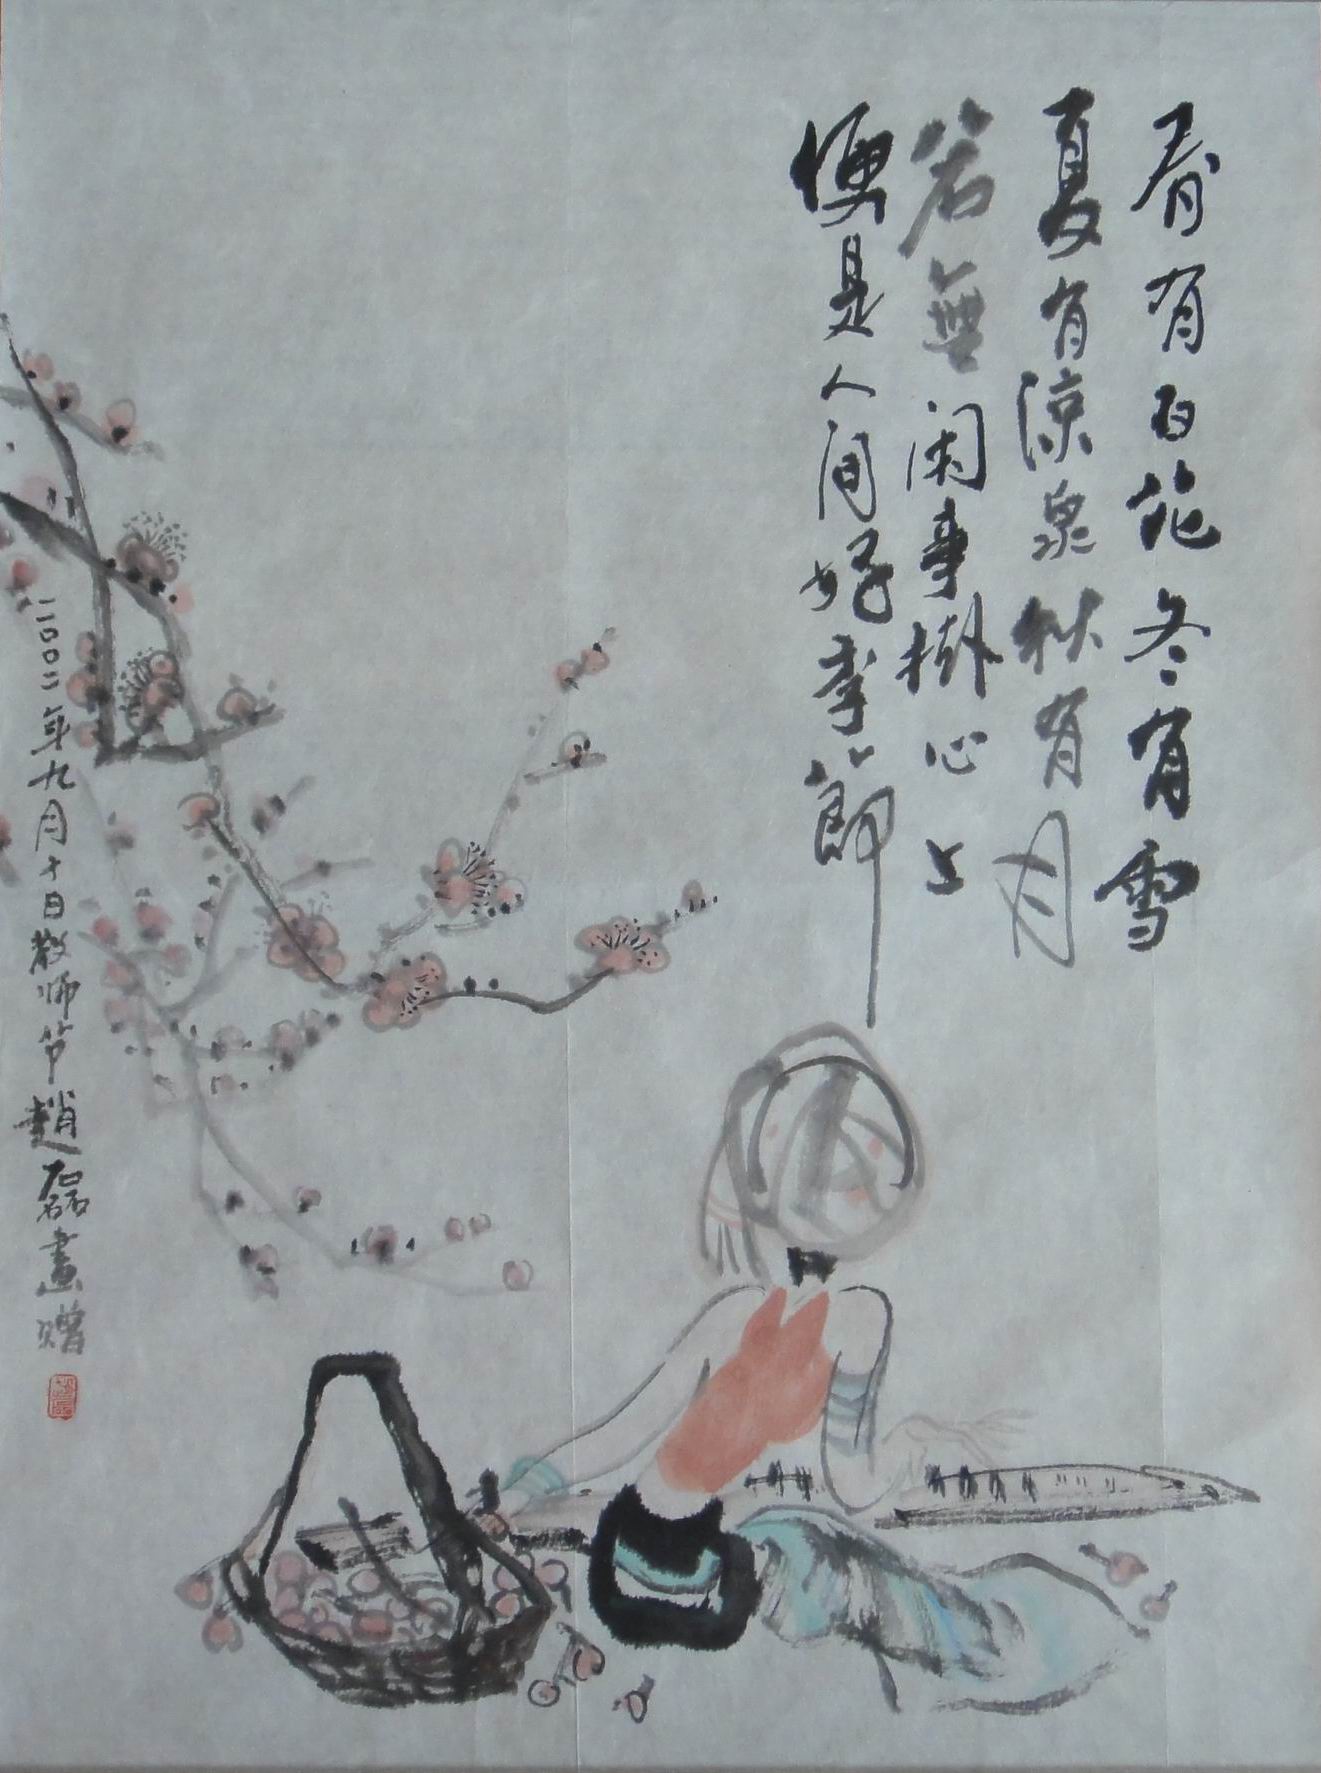 春有百花冬有雪
夏有涼泉秋有月
若無閑事掛心上
便是人间好季節
二〇〇二年九月十日教师节趙磊畫赠